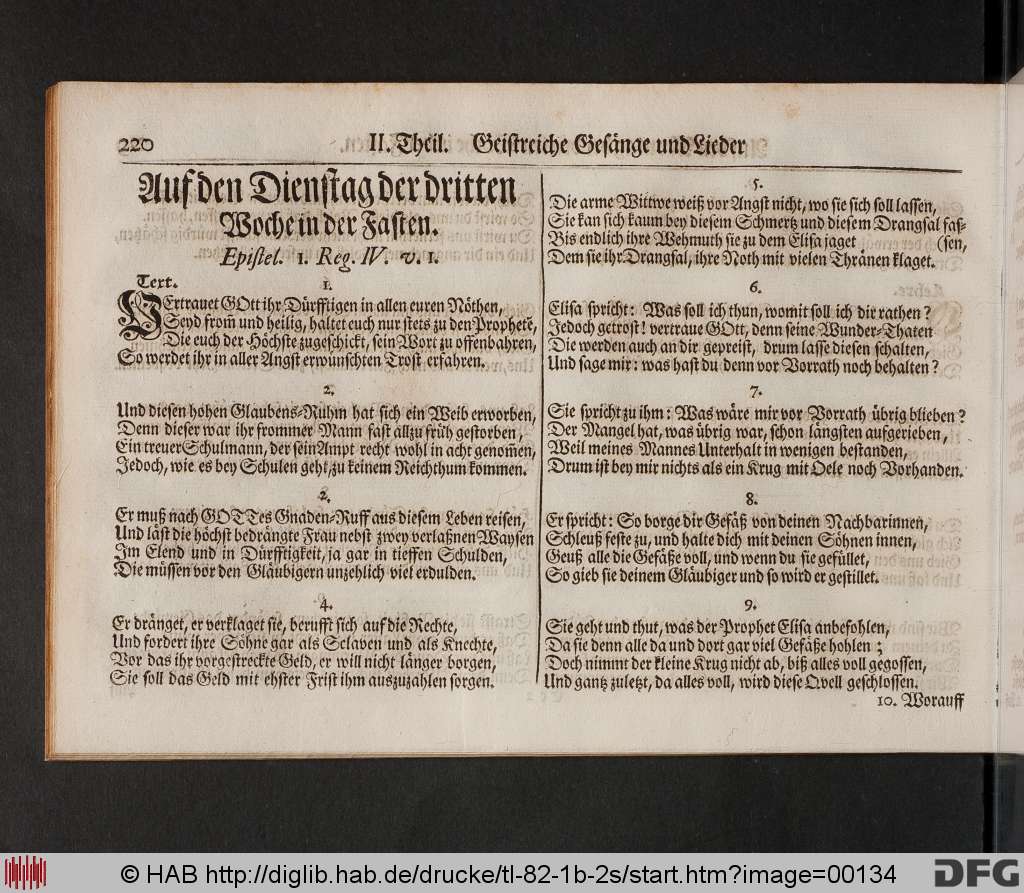 220
II. Theil. Geistreiche Gesänge und Lieder
Auf den Dienstag der dritten
Woche in der Fasten.
Epistel. 1. Reg. IV. v. 1.
Text.
1.
VErtrauet GOtt ihr Dürfftigen in allen euren Nöthen,
Seyd from̄ und heilig, haltet euch nur stets zu den Prophetē,
Die euch der Höchste zugeschickt, sein Wort zu offenbahren,
So werdet ihr in aller Angst erwünschten Trost erfahren.
2.
Und diesen hohen Glaubens-Ruhm hat sich ein Weib erworben,
Denn dieser war ihr frommer Mann fast allzu früh gestorben,
Ein treuer Schulmann, der sein Ampt recht wohl in acht genom̄en,
Jedoch, wie es bey Schulen geht, zu keinem Reichthum kommen.
2.
Er muß nach GOTTes Gnaden-Ruff aus diesem Leben reisen,
Und läst die höchst bedrängte Frau nebst zwey verlaßnen Waysen
Im Elend und in Dürfftigkeit, ja gar in tieffen Schulden,
Die müssen vor den Gläubigern unzehlich viel erdulden.
4.
Er dränget, er verklaget sie, berufft sich auf die Rechte,
Und fordert ihre Söhne gar als Sclaven und als Knechte,
Vor das ihr vorgestreckte Geld, er will nicht länger borgen,
Sie soll das Geld mit ehster Frist ihm auszuzahlen sorgen.
5.
Die arme Wittwe weiß vor Angst nicht, wo sie sich soll lassen,
Sie kan sich kaum bey diesem Schmertz und diesem Drangsal faß-
Bis endlich ihre Wehmuth sie zu dem Elisa jaget (sen,
Dem sie ihr Drangsal, ihre Noth mit vielen Thränen klaget.
6.
Elisa spricht: Was soll ich thun, womit soll ich dir rathen?
Jedoch getrost! vertraue GOtt, denn seine Wunder-Thaten
Die werden auch an dir gepreist, drum lasse diesen schalten,
Und sage mir: was hast du denn vor Vorrath noch behalten?
7.
Sie spricht zu ihm: Was wäre mir vor Vorrath übrig blieben?
Der Mangel hat, was übrig war, schon längsten aufgerieben,
Weil meines Mannes Unterhalt in wenigen bestanden,
Drum ist bey mir nichts als ein Krug mit Oele noch Vorhanden.
8.
Er spricht: So borge dir Gefäß von deinen Nachbarinnen,
Schleuß feste zu, und halte dich mit deinen Söhnen innen,
Geuß alle die Gefäße voll, und wenn du sie gefüllet,
So gieb sie deinem Gläubiger und so wird er gestillet.
9.
Sie geht und thut, was der Prophet Elisa anbefohlen,
Da sie denn alle da und dort gar viel Gefäße hohlen;
Doch nimmt der kleine Krug nicht ab, biß alles voll gegossen,
Und gantz zuletzt, da alles voll, wird diese Qvell geschlossen.
10. Worauff
© HAB http://diglib.hab.de/drucke/tl-82-1b-2s/start.htm?image=00134
DFG